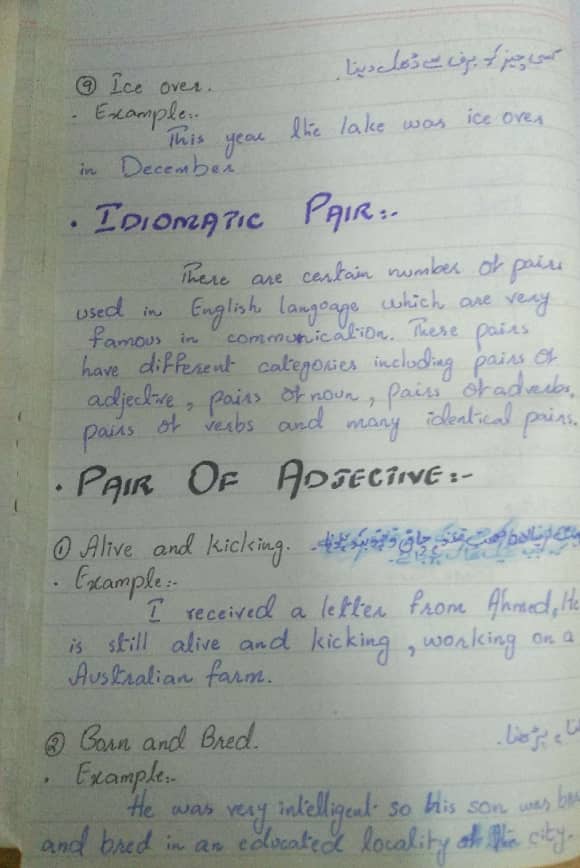 کسی چیز کو برف سے ڈھک دینا
⑨ Ice over.
· Example:-
This year the lake was ice over
in December
· IDIOMATIC PAIR:-
There are certain number of pairs
used in English langoage which are very
famous in communication. These pairs
have different categories including pairs of
adjective, pairs of noun, pairs of adverbs,
pairs of verbs and many identical pairs.
· PAIR OF ADJECTIVE:-
① Alive and kicking.
· Example:-
I received a letter from Ahmed, He
is still alive and kicking, working on a
Australian farm.
② Born and Bred.
· Example:-
He was very intelligent so his son was
and bred in an educated locality of the city.